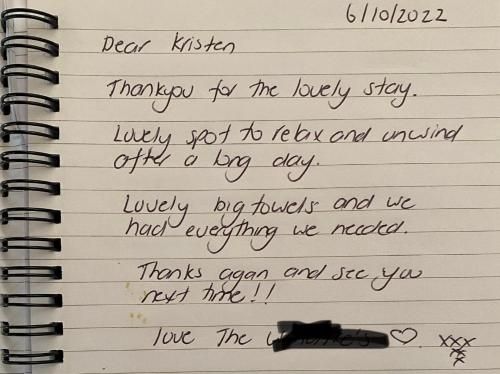 6/10/2022
Dear Kristen
Thankyou for the lovely stay.
Lovely spot to relax and unwind
after a long day.
Lovely big towels and we
had eveything we needed.
Thanks agan and see you
next time!!
love The ♡. xxx
x
x